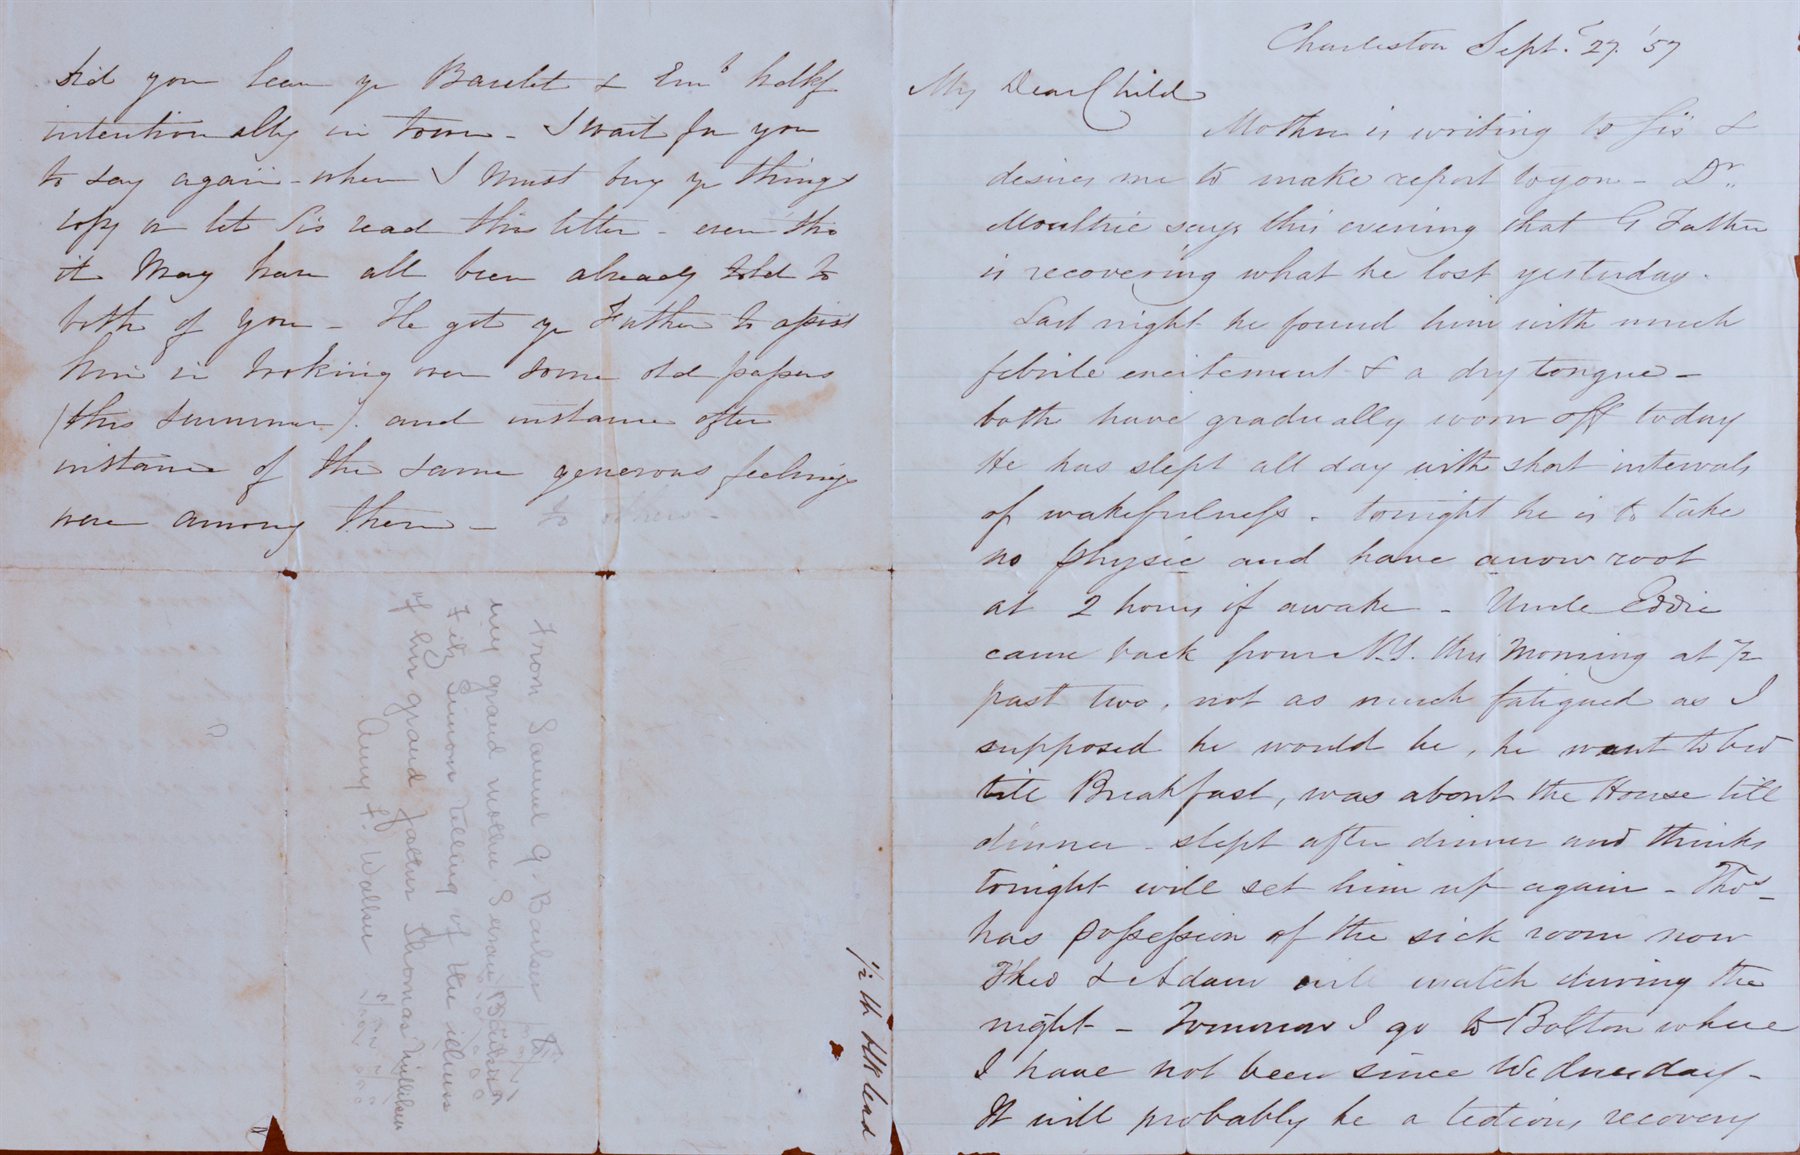 Charleston Sept. 27. '57
My Dear Child
Mother is writing to Sis &
desires me to make report to you - Dr.
Moultrie says this evening that G Father
is recovering what he lost yesterday.
Last night he found him with much
febrile excitement & a dry tongue -
both have gradually worn off today
He has slept all day with short intervals
of wakefulness. tonight he is to take
no physic and have arrow root
at 2 hours if awake - Uncle Eddie
came back from N.Y. this Morning at 1/2
past two, not as much fatigued as I
supposed he would be, he went to bed
till Breakfast, was about the House till
dinner - slept after dinner and thinks
tonight will set him up again - Thos
has possession of the sick room now
Theo & Adam will watch during the
night - Tomorrow I go to Bolton where
I have not been since Wednesday -
It will probably be a tedious recovery
Did you leave ye & Emb hdkf
intentionally in town - I wait for you
to say again - when I must buy ye things
copy or let Sis read this letter - even tho
it may have all been already told to
both of you - He got ye Father to assist
him in looking over some old papers
(this summer). and instance after
instance of the same generous feelings
were among them - to others -
From Samuel G. Barker to
my grand mother Barker
Fitz Simon telling of the illness
of her grand father Thomas Milliken
Amy F. Walker